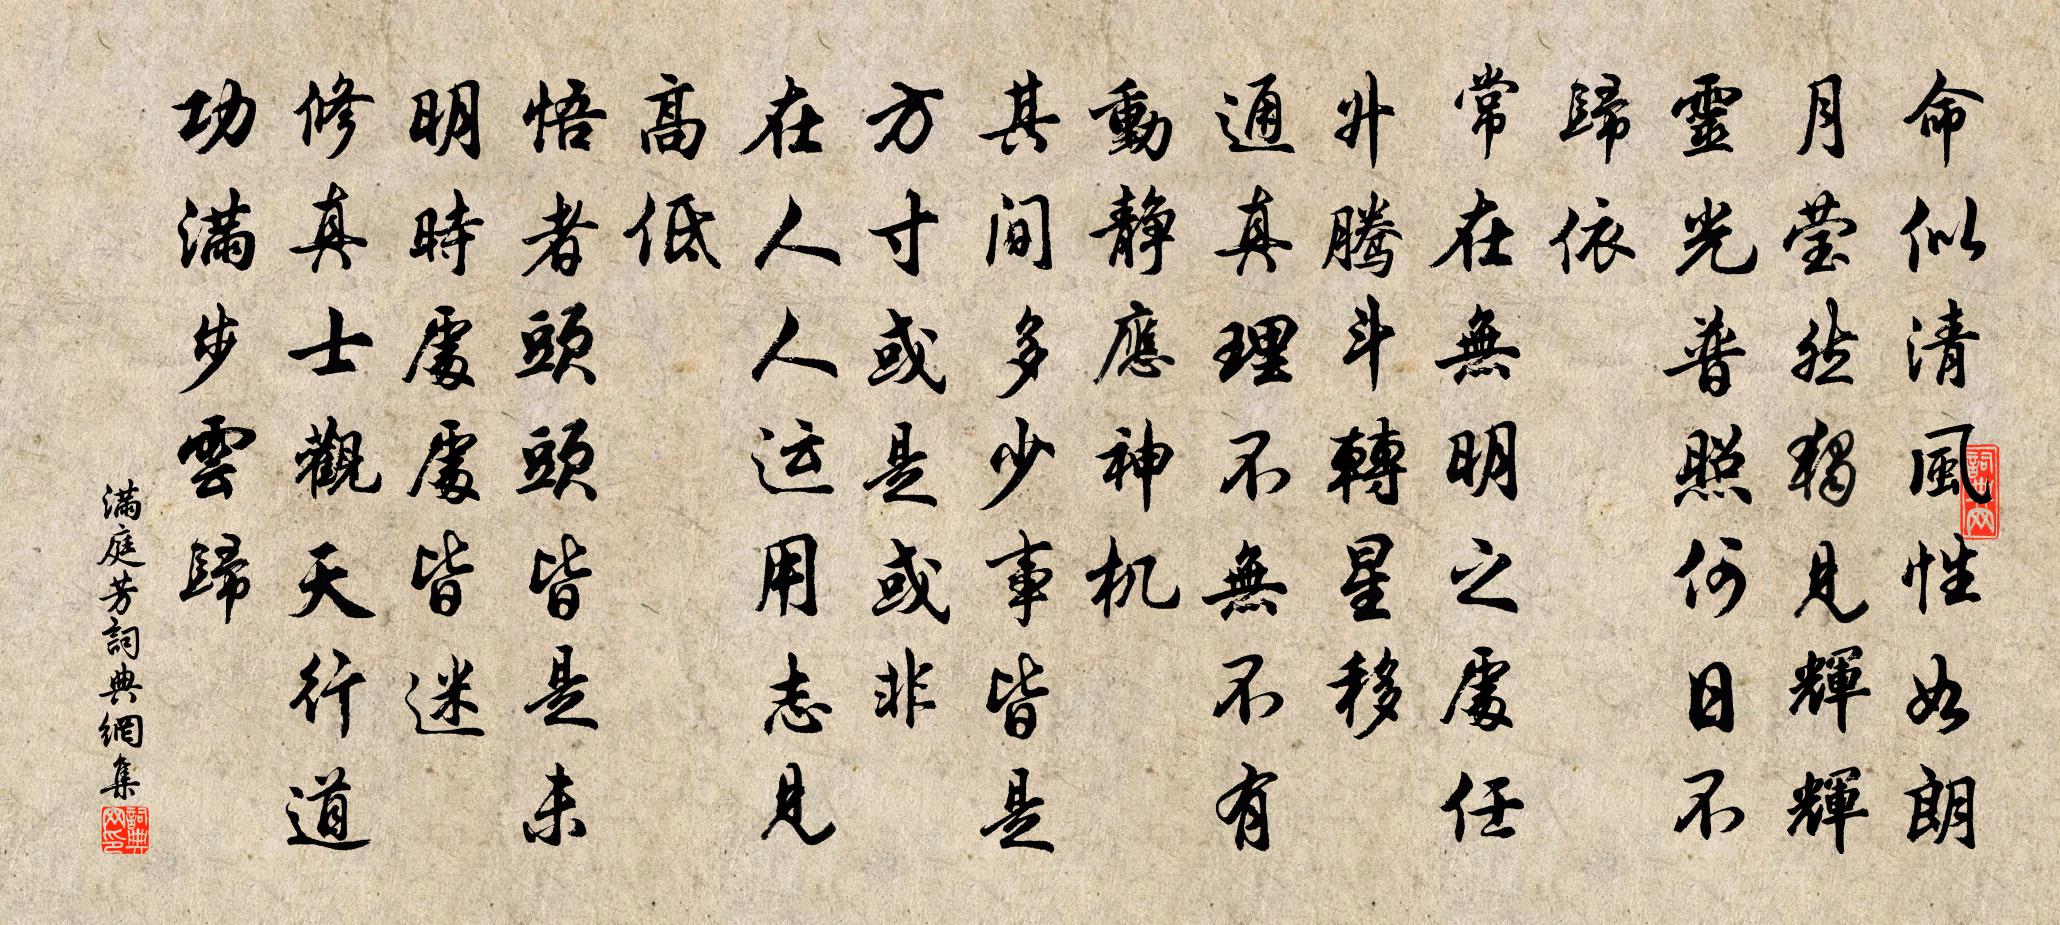 命似清風性如朗
月莹然獨見輝輝
靈光普照何日不
歸依
常在無明之處任
升騰斗轉星移
通真理不無不有
動靜應神机
其间多少事皆是
方寸或是或非
在人人运用志見
高低
悟者頭頭皆是未
明時處處皆迷
修真士觀天行道
功滿步雲歸
满庭芳詞典網集
詞典网
詞典网印